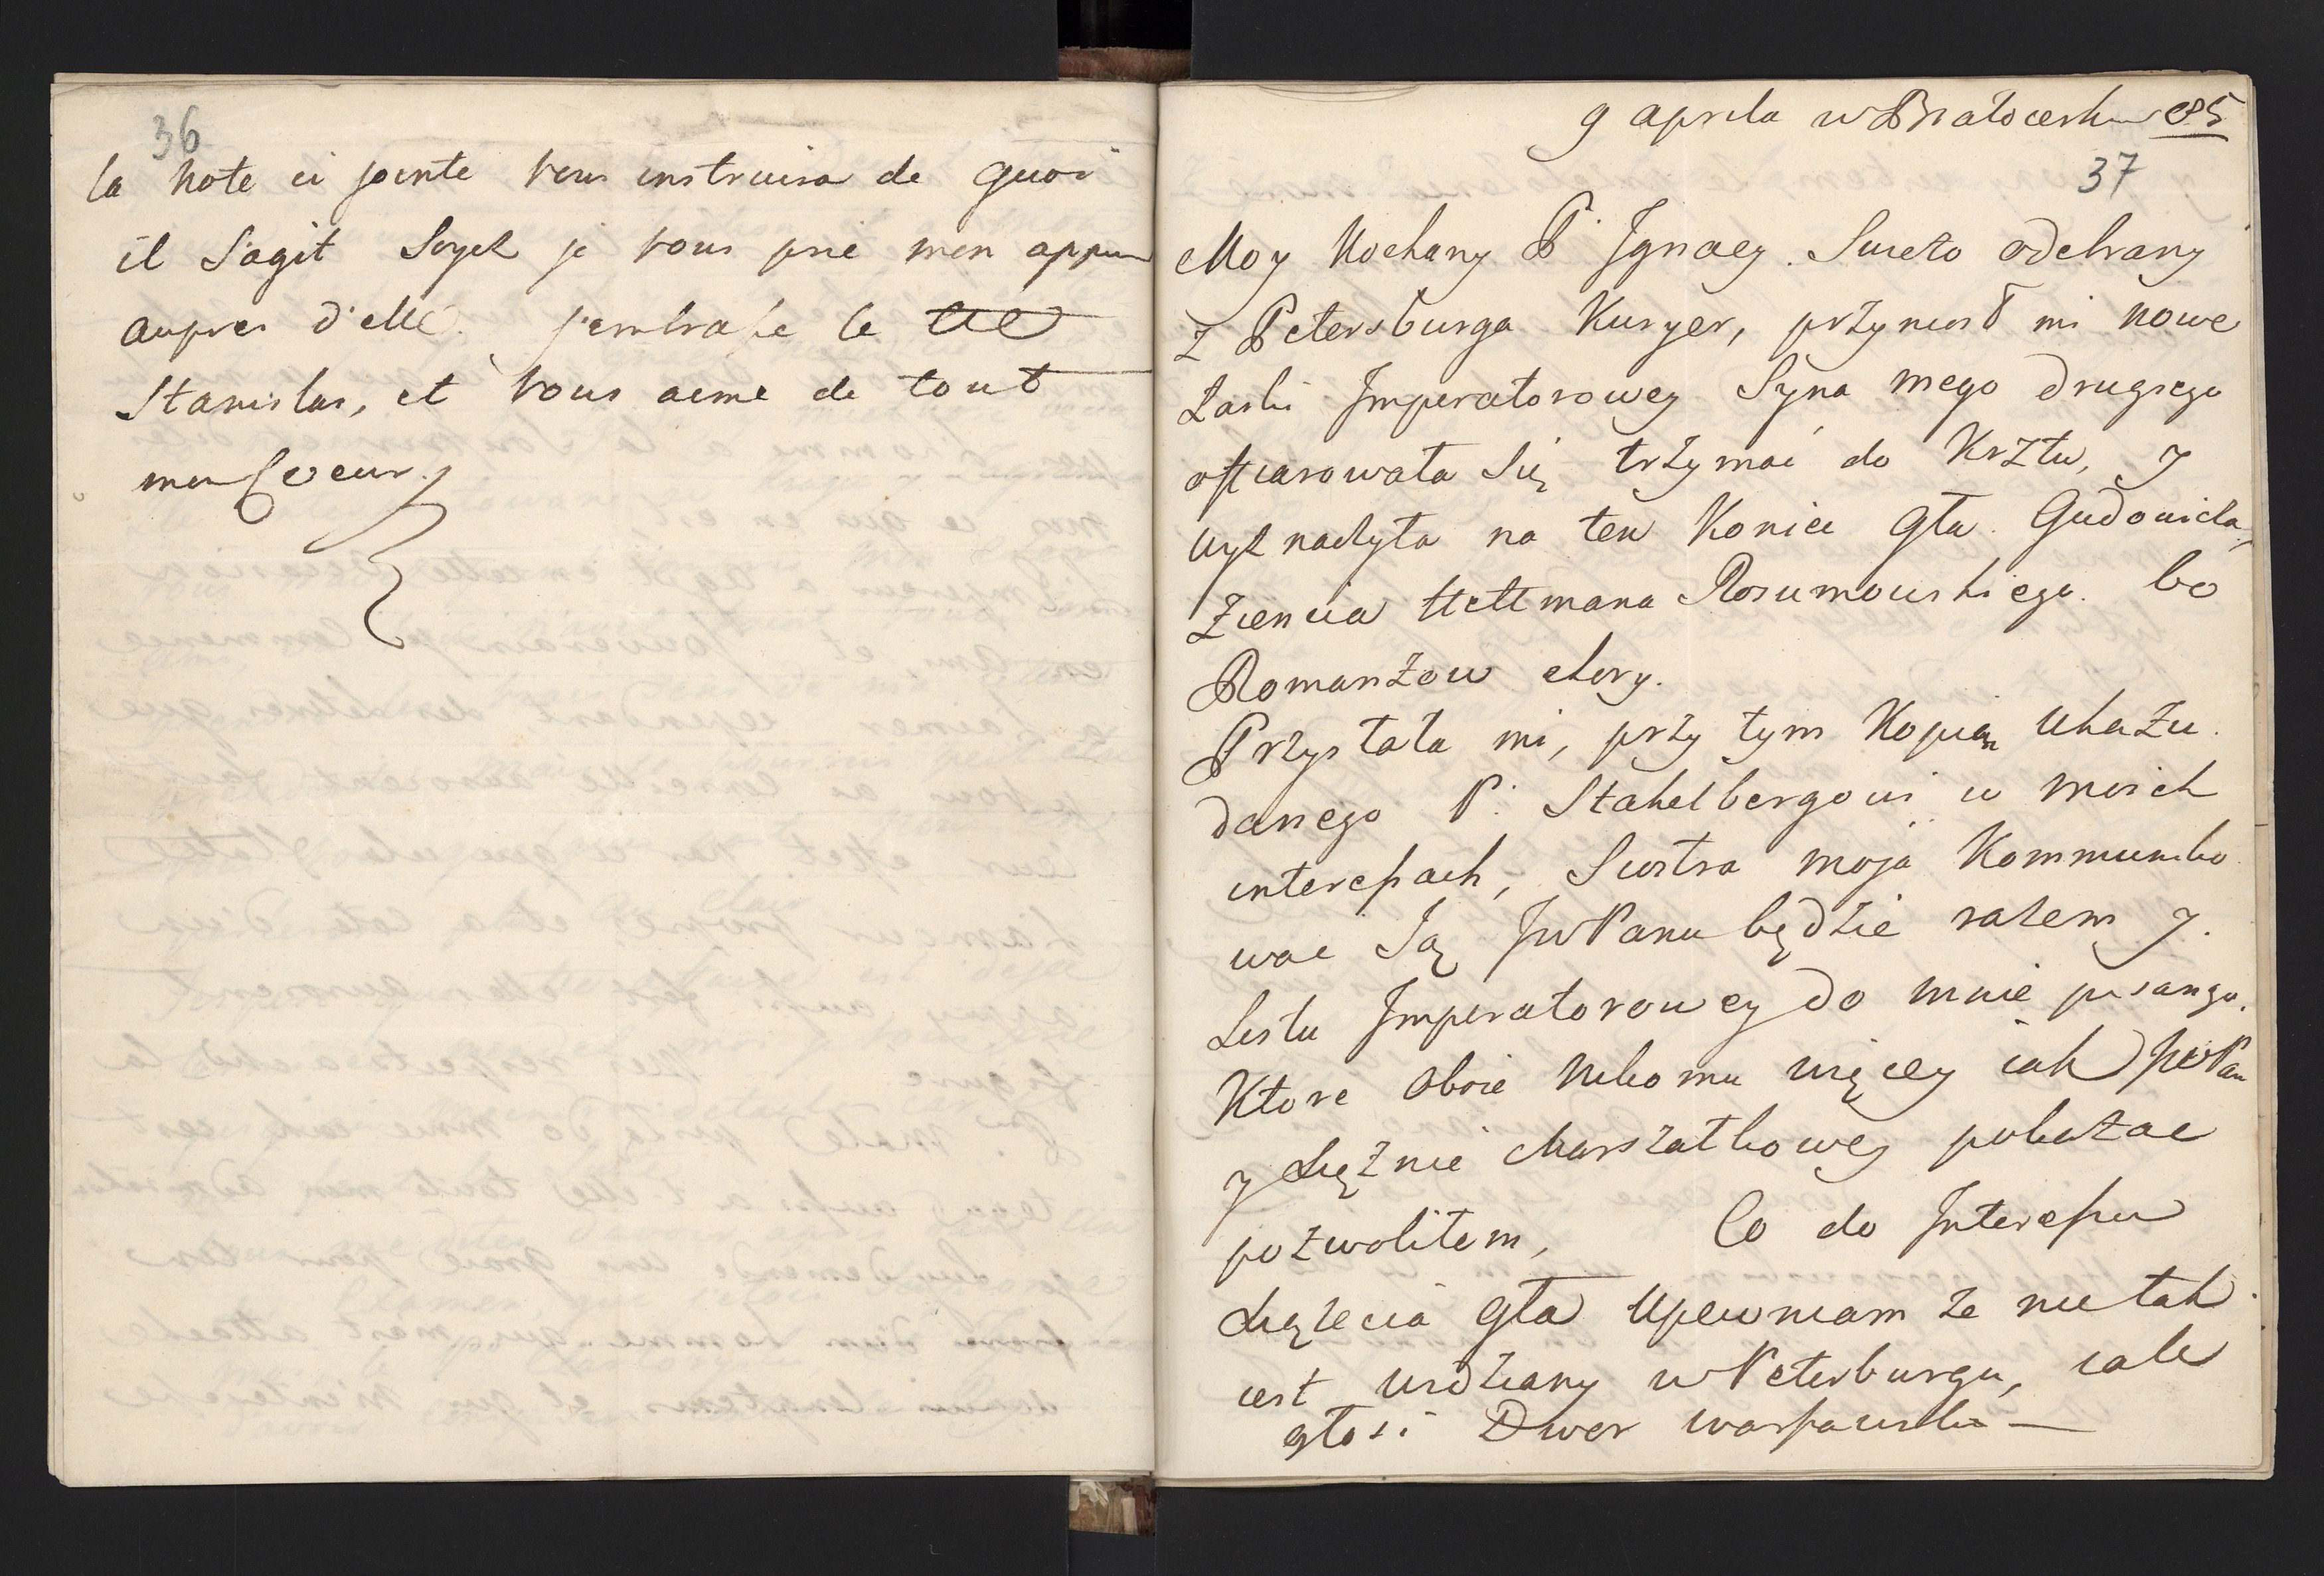 36
la Note ci jointe vous instruira de quoi
il s'agit Soyez je vous prie mon appui
aupres d'elle. j'embrasse le
Stanislas, et vous aime de tout
mon Coeur.
9 aprila w Białocerkw 85
37
Moy Kochany P. Ignacy. Swieżo odebrany
z Petersburga Kuryer, przyniosł mi nowe
Łaski Imperatorowey Syna mego drugiego
ofiarowała Się trzymać do Krztu, y
wyznaczyła na ten Koniec Gła. Gudowicza,
Ziencia Hettmana Rosumowskiego. bo
Romanzow chory.
Przysłała mi, przy tym Kopią Ukazu
danego P. Stakelbergowi w moich
interessach, Siostra moja Kommuniko
wac Ją JWPanu będzie razem y
Listu Imperatorowey do mnie pisango.
Ktore oboie nikomu więcey iak JWPanu
y Xiężnie Marszałkowey pokazac
pozwoliłem, Co do Interessu
Xiążecia Gła upewniam że nie tak
iest widziany w Peterburgu, iak
głosi Dwor warszawski —